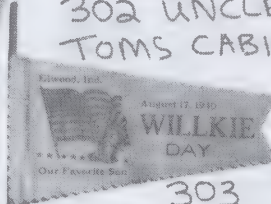 302 UNCLE
TOMS CABI
Elwood, Ind.
August 17, 1940
WILLKIE
DAY
Our Favorite Son
303